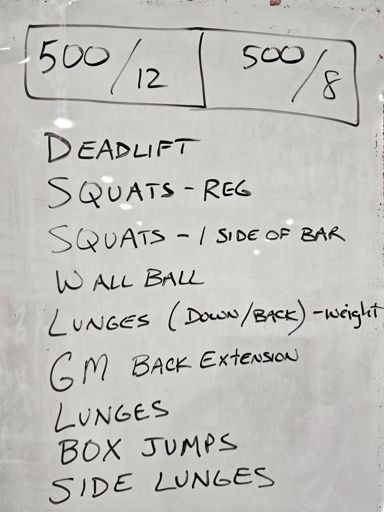 500/12 500/8
DEADLIFT
SQUATS - REG
SQUATS - 1 SIDE OF BAR
WALL BALL
LUNGES (DOWN/BACK) - weight
GM BACK EXTENSION
LUNGES
BOX JUMPS
SIDE LUNGES